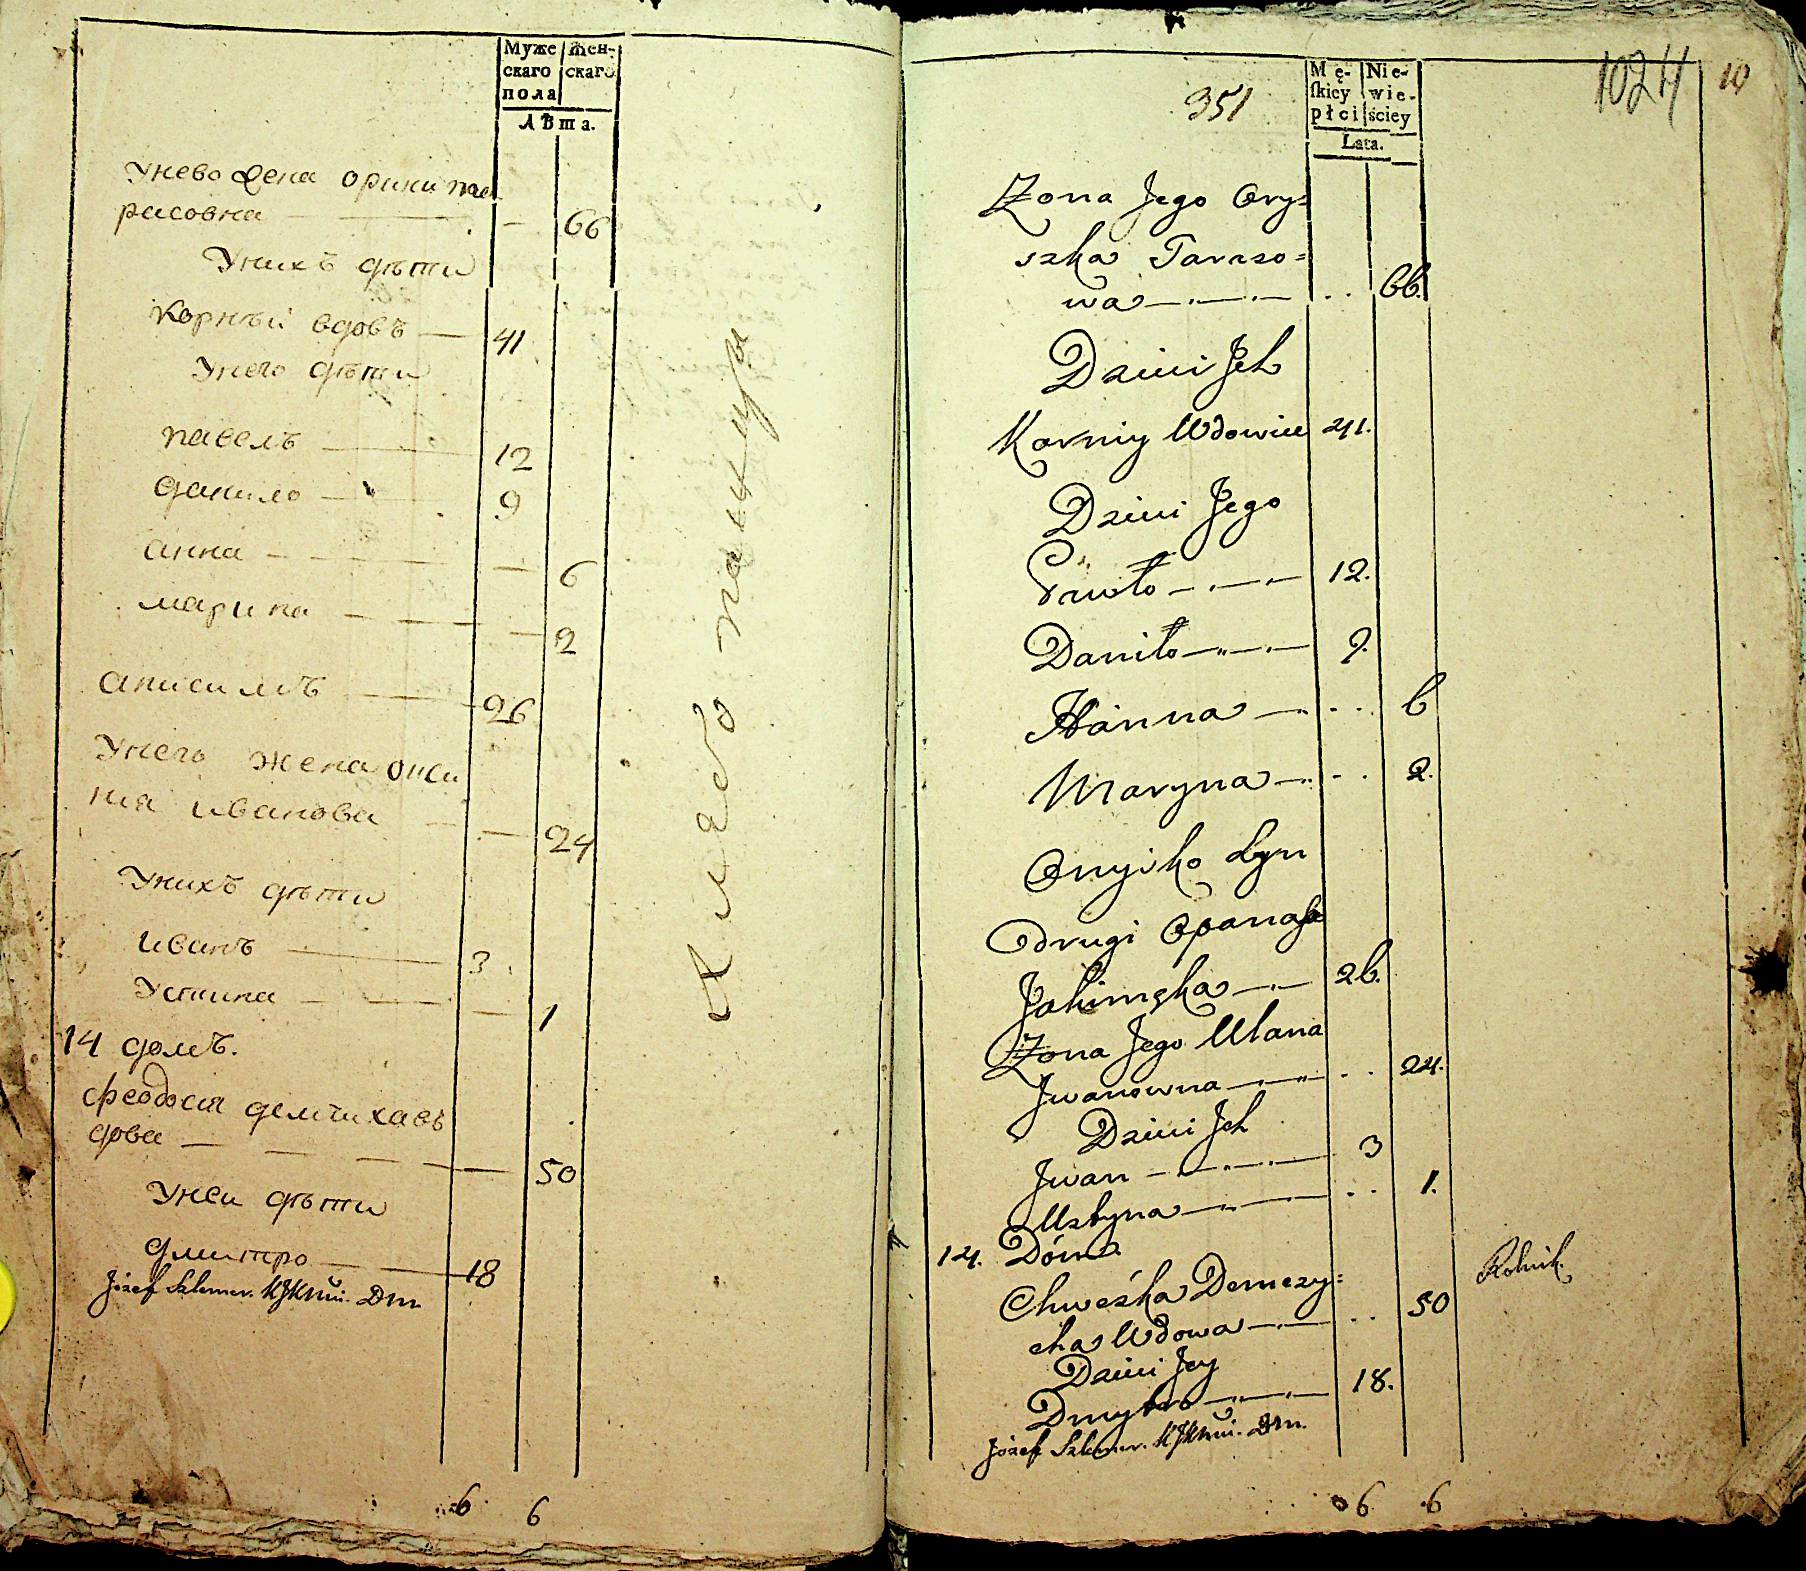 Муже
скаго
пола
жен-
скаго
Лѣта.
Унево жена орина та
расовна — — 66
Унихъ дѣти
Корнѣй вдовъ — 41
Унего дѣти
павелъ — 12
данило — 9
анна — — — 6
марина — — — 2
анисимъ — 26
Унего жена
ния иванова — — 24
Унихъ дѣти
иванъ — 3
Устина — — 1
14 домъ.
феодосия демчихавъ
дова — — — 50
Унеи дѣти
дмитро — 18
Józef
6 6
351
Mę-
skiey
płci
Nie-
wie-
ściey
Lata.
1024
10
Zona Jego Ory=
szka Taraso=
wa — . . 66.
Dzieci Jch
Korniy Wdowiec 41.
Dzieci Jego
Pawło — 12.
Daniło — 9.
Hanna — . . 6
Maryna — . . 2.
Onyśko Syn
drugi Opanasa
Jakimcka — 26.
Zona Jego Ulana
Jwanowna — . . 24.
Dzieci Jch
Jwan — 3
Ustyna — . . 1.
14. Dóm
Chweśka Demczy=
cha Wdowa — . . 50
Rolnik.
Dzieci Jey
Dmytro — 18.
Józef
6 6